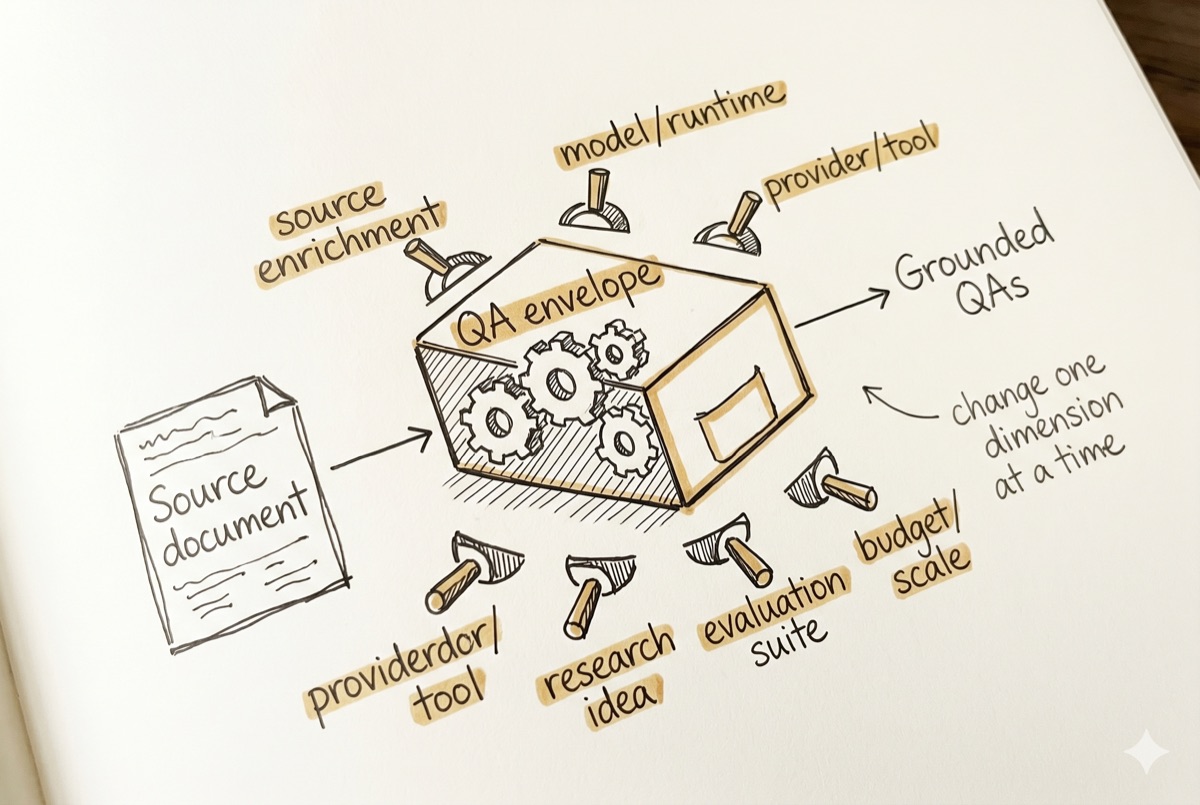 model/runtime
provider/tool
source
enrichment
QA envelope
Grounded
QAs
Source
document
change one
dimension
at a time
budget/
scale
evaluation
suite
providerdor/
tool
research
idea